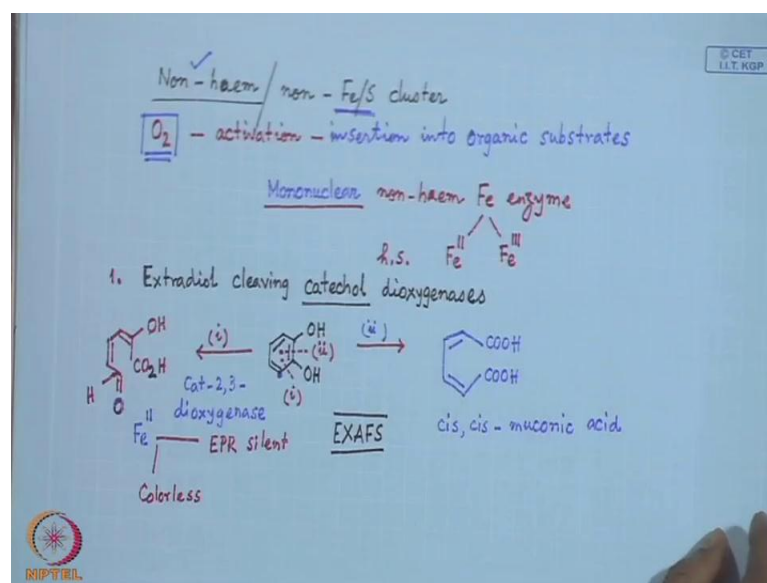 © CET
I.I.T. KGP
Non-haem / non-Fe/S cluster
O2 - activation - insertion into organic substrates
Mononuclear non-haem Fe enzyme
h.s. Fe^II Fe^III
1. Extradiol cleaving catechol dioxygenases
OH (i) OH (ii) COOH
CO2H (ii)
H O Cat-2,3-dioxygenase OH (i) COOH
Fe^II EPR silent EXAFS cis, cis-muconic acid
Colorless
NPTEL